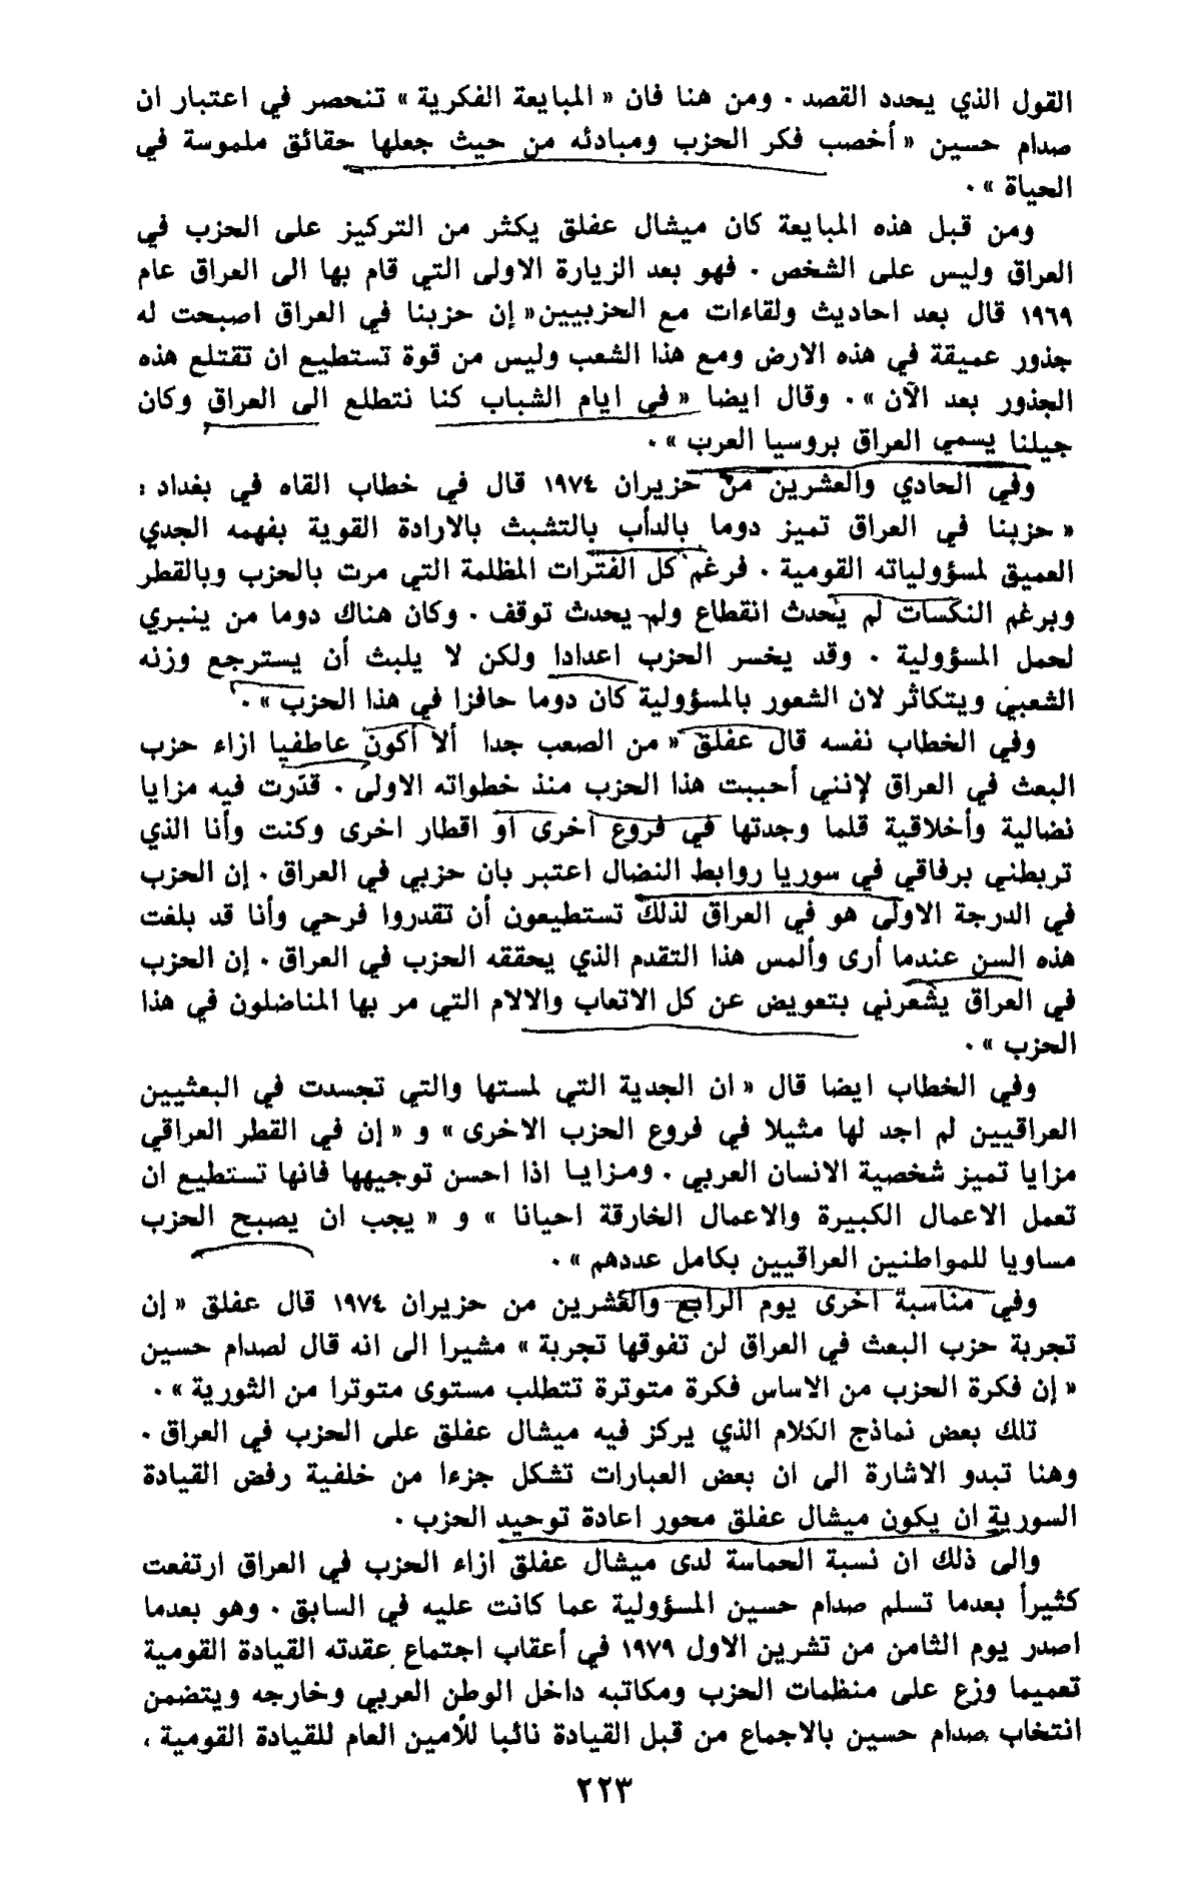 القول الذي يحدد القصد . ومن هنا فان « المبايعة الفكرية » تنحصر في اعتبار ان
صدام حسين « أخصب فكر الحزب ومبادئه من حيث جعلها حقائق ملموسة في
الحياة » .
ومن قبل هذه المبايعة كان ميشال عفلق يكثر من التركيز على الحزب في
العراق وليس على الشخص . فهو بعد الزيارة الاولى التي قام بها الى العراق عام
١٩٦٩ قال بعد احاديث ولقاءات مع الحزبيين « إن حزبنا في العراق اصبحت له
جذور عميقة في هذه الارض ومع هذا الشعب وليس من قوة تستطيع ان تقتلع هذه
الجذور بعد الآن » . وقال ايضا « في ايام الشباب كنا نتطلع الى العراق وكان
جيلنا يسمي العراق بروسيا العرب » .
وفي الحادي والعشرين من حزيران ١٩٧٤ قال في خطاب القاه في بغداد :
« حزبنا في العراق تميز دوما بالدأب بالتشبث بالارادة القوية بفهمه الجدي
العميق لمسؤولياته القومية . فرغم كل الفترات المظلمة التي مرت بالحزب وبالقطر
وبرغم النكسات لم يحدث انقطاع ولم يحدث توقف . وكان هناك دوما من ينبري
لحمل المسؤولية . وقد يخسر الحزب اعدادا ولكن لا يلبث أن يسترجع وزنه
الشعبي ويتكاثر لان الشعور بالمسؤولية كان دوما حافزا في هذا الحزب » .
وفي الخطاب نفسه قال عفلق « من الصعب جدا ألا أكون عاطفيا ازاء حزب
البعث في العراق لإنني أحببت هذا الحزب منذ خطواته الاولى . قدّرت فيه مزايا
نضالية وأخلاقية قلما وجدتها في فروع اخرى او اقطار اخرى وكنت وأنا الذي
تربطني برفاقي في سوريا روابط النضال اعتبر بان حزبي في العراق . إن الحزب
في الدرجة الاولى هو في العراق لذلك تستطيعون أن تقدروا فرحي وأنا قد بلغت
هذه السن عندما أرى وألمس هذا التقدم الذي يحققه الحزب في العراق . إن الحزب
في العراق يشعرني بتعويض عن كل الاتعاب والالام التي مر بها المناضلون في هذا
الحزب » .
وفي الخطاب ايضا قال « ان الجدية التي لمستها والتي تجسدت في البعثيين
العراقيين لم اجد لها مثيلا في فروع الحزب الاخرى » و « إن في القطر العراقي
مزايا تميز شخصية الانسان العربي . ومزايا اذا احسن توجيهها فانها تستطيع ان
تعمل الاعمال الكبيرة والاعمال الخارقة احيانا » و « يجب ان يصبح الحزب
مساويا للمواطنين العراقيين بكامل عددهم » .
وفي مناسبة اخرى يوم الرابع والعشرين من حزيران ١٩٧٤ قال عفلق « إن
تجربة حزب البعث في العراق لن تفوقها تجربة » مشيرا الى انه قال لصدام حسين
« إن فكرة الحزب من الاساس فكرة متوترة تتطلب مستوى متوترا من الثورية » .
تلك بعض نماذج الكلام الذي يركز فيه ميشال عفلق على الحزب في العراق .
وهنا تبدو الاشارة الى ان بعض العبارات تشكل جزءا من خلفية رفض القيادة
السورية ان يكون ميشال عفلق محور اعادة توحيد الحزب .
والى ذلك ان نسبة الحماسة لدى ميشال عفلق ازاء الحزب في العراق ارتفعت
كثيراً بعدما تسلم صدام حسين المسؤولية عما كانت عليه في السابق . وهو بعدما
اصدر يوم الثامن من تشرين الاول ١٩٧٩ في أعقاب اجتماع عقدته القيادة القومية
تعميما وزع على منظمات الحزب ومكاتبه داخل الوطن العربي وخارجه ويتضمن
انتخاب صدام حسين بالاجماع من قبل القيادة نائبا للأمين العام للقيادة القومية ،
٢٢٣